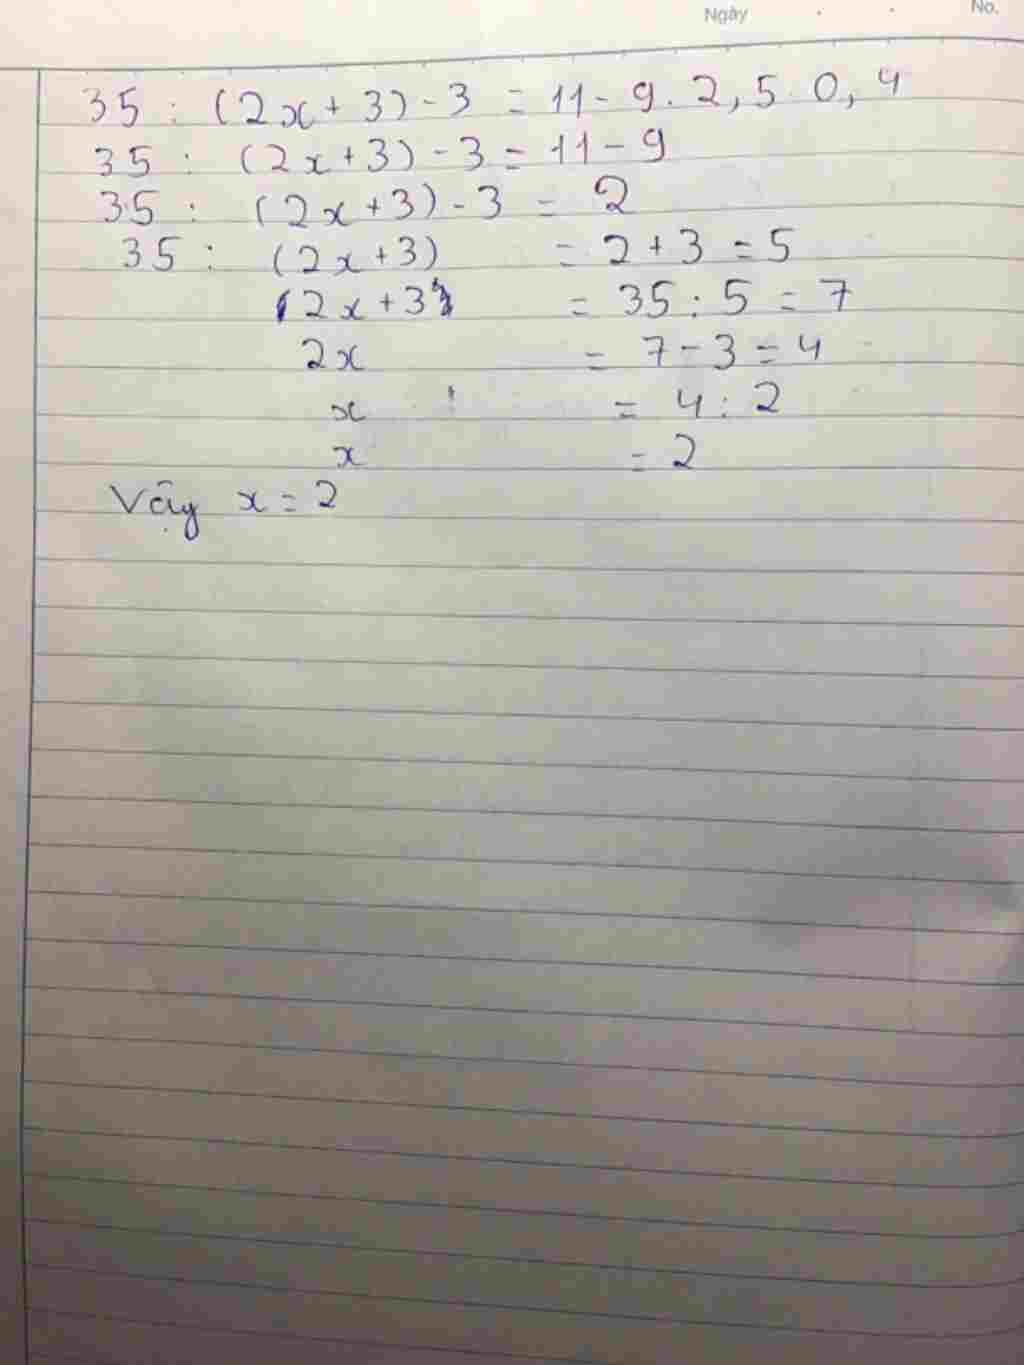 Ngày . . No.
35 : (2x + 3) - 3 = 11 - 9. 2,5 0,4
35 : (2x + 3) - 3 = 11 - 9
35 : (2x + 3) - 3 = 2
35 : (2x + 3) = 2 + 3 = 5
2x + 3 = 35 : 5 = 7
2x = 7 - 3 = 4
x = 4 : 2
x = 2
Vậy x = 2